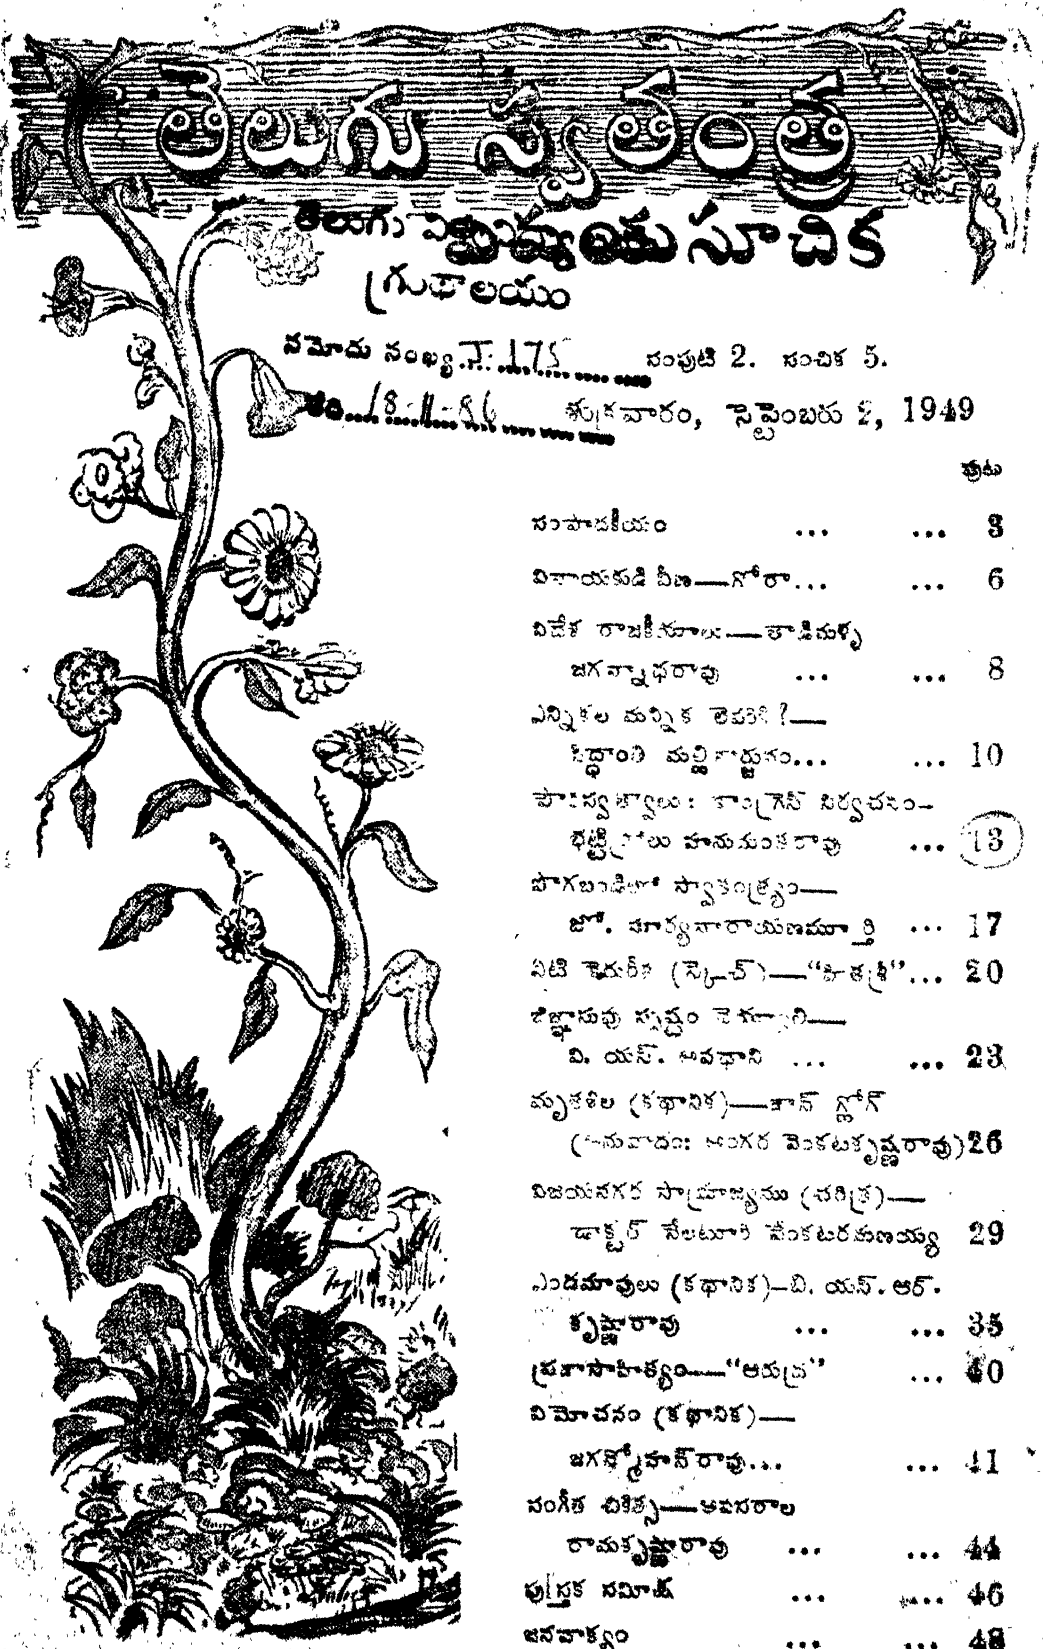 తెలుగు స్వతంత్ర
తెలుగు
విషయసూచిక
గ్రంథాలయం
నమోదు సంఖ్య J: 175 సంపుటి 2. సంచిక 5.
తేది 18-11-86 శుక్రవారం, సెప్టెంబరు 2, 1949
పుట
సంపాదకీయం ... ... 3
వినాయకుడి వీణ—గోరా... ... 6
విదేశ రాజకీయాలు—తాడిమళ్ళ
జగన్నాథరావు ... ... 8
ఎన్నికల మన్నిక
సిద్ధాంతి మల్లికార్జునం... ... 10
పౌరస్వత్వాలు: కాంగ్రెస్ నిర్వచనం—
భట్టిప్రోలు హనుమంతరావు ... 13
పొగబండిలో స్వాతంత్ర్యం—
జో. సూర్యనారాయణమూర్తి ... 17
(స్కెచ్)—"హితశ్రీ"... 20
జిజ్ఞాసువు స్పష్టం
వి. యస్. అవధాని ... ... 23
మృతశీల (కథానిక)—
(అనువాదం: అంగర వెంకటకృష్ణరావు) 26
విజయనగర సామ్రాజ్యము (చరిత్ర)—
డాక్టర్ నేలటూరి వేంకటరమణయ్య 29
ఎండమావులు (కథానిక)—బి. యస్. ఆర్.
కృష్ణారావు ... ... 35
ప్రజాసాహిత్యం—"ఆరుద్ర" ... 40
విమోచనం (కథానిక)—
జగన్మోహన్‌రావు... ... 41
సంగీత చికిత్స—అవసరాల
రామకృష్ణారావు ... ... 44
పుస్తక సమీక్ష ... ... 46
జనవాక్యం ... ... 48